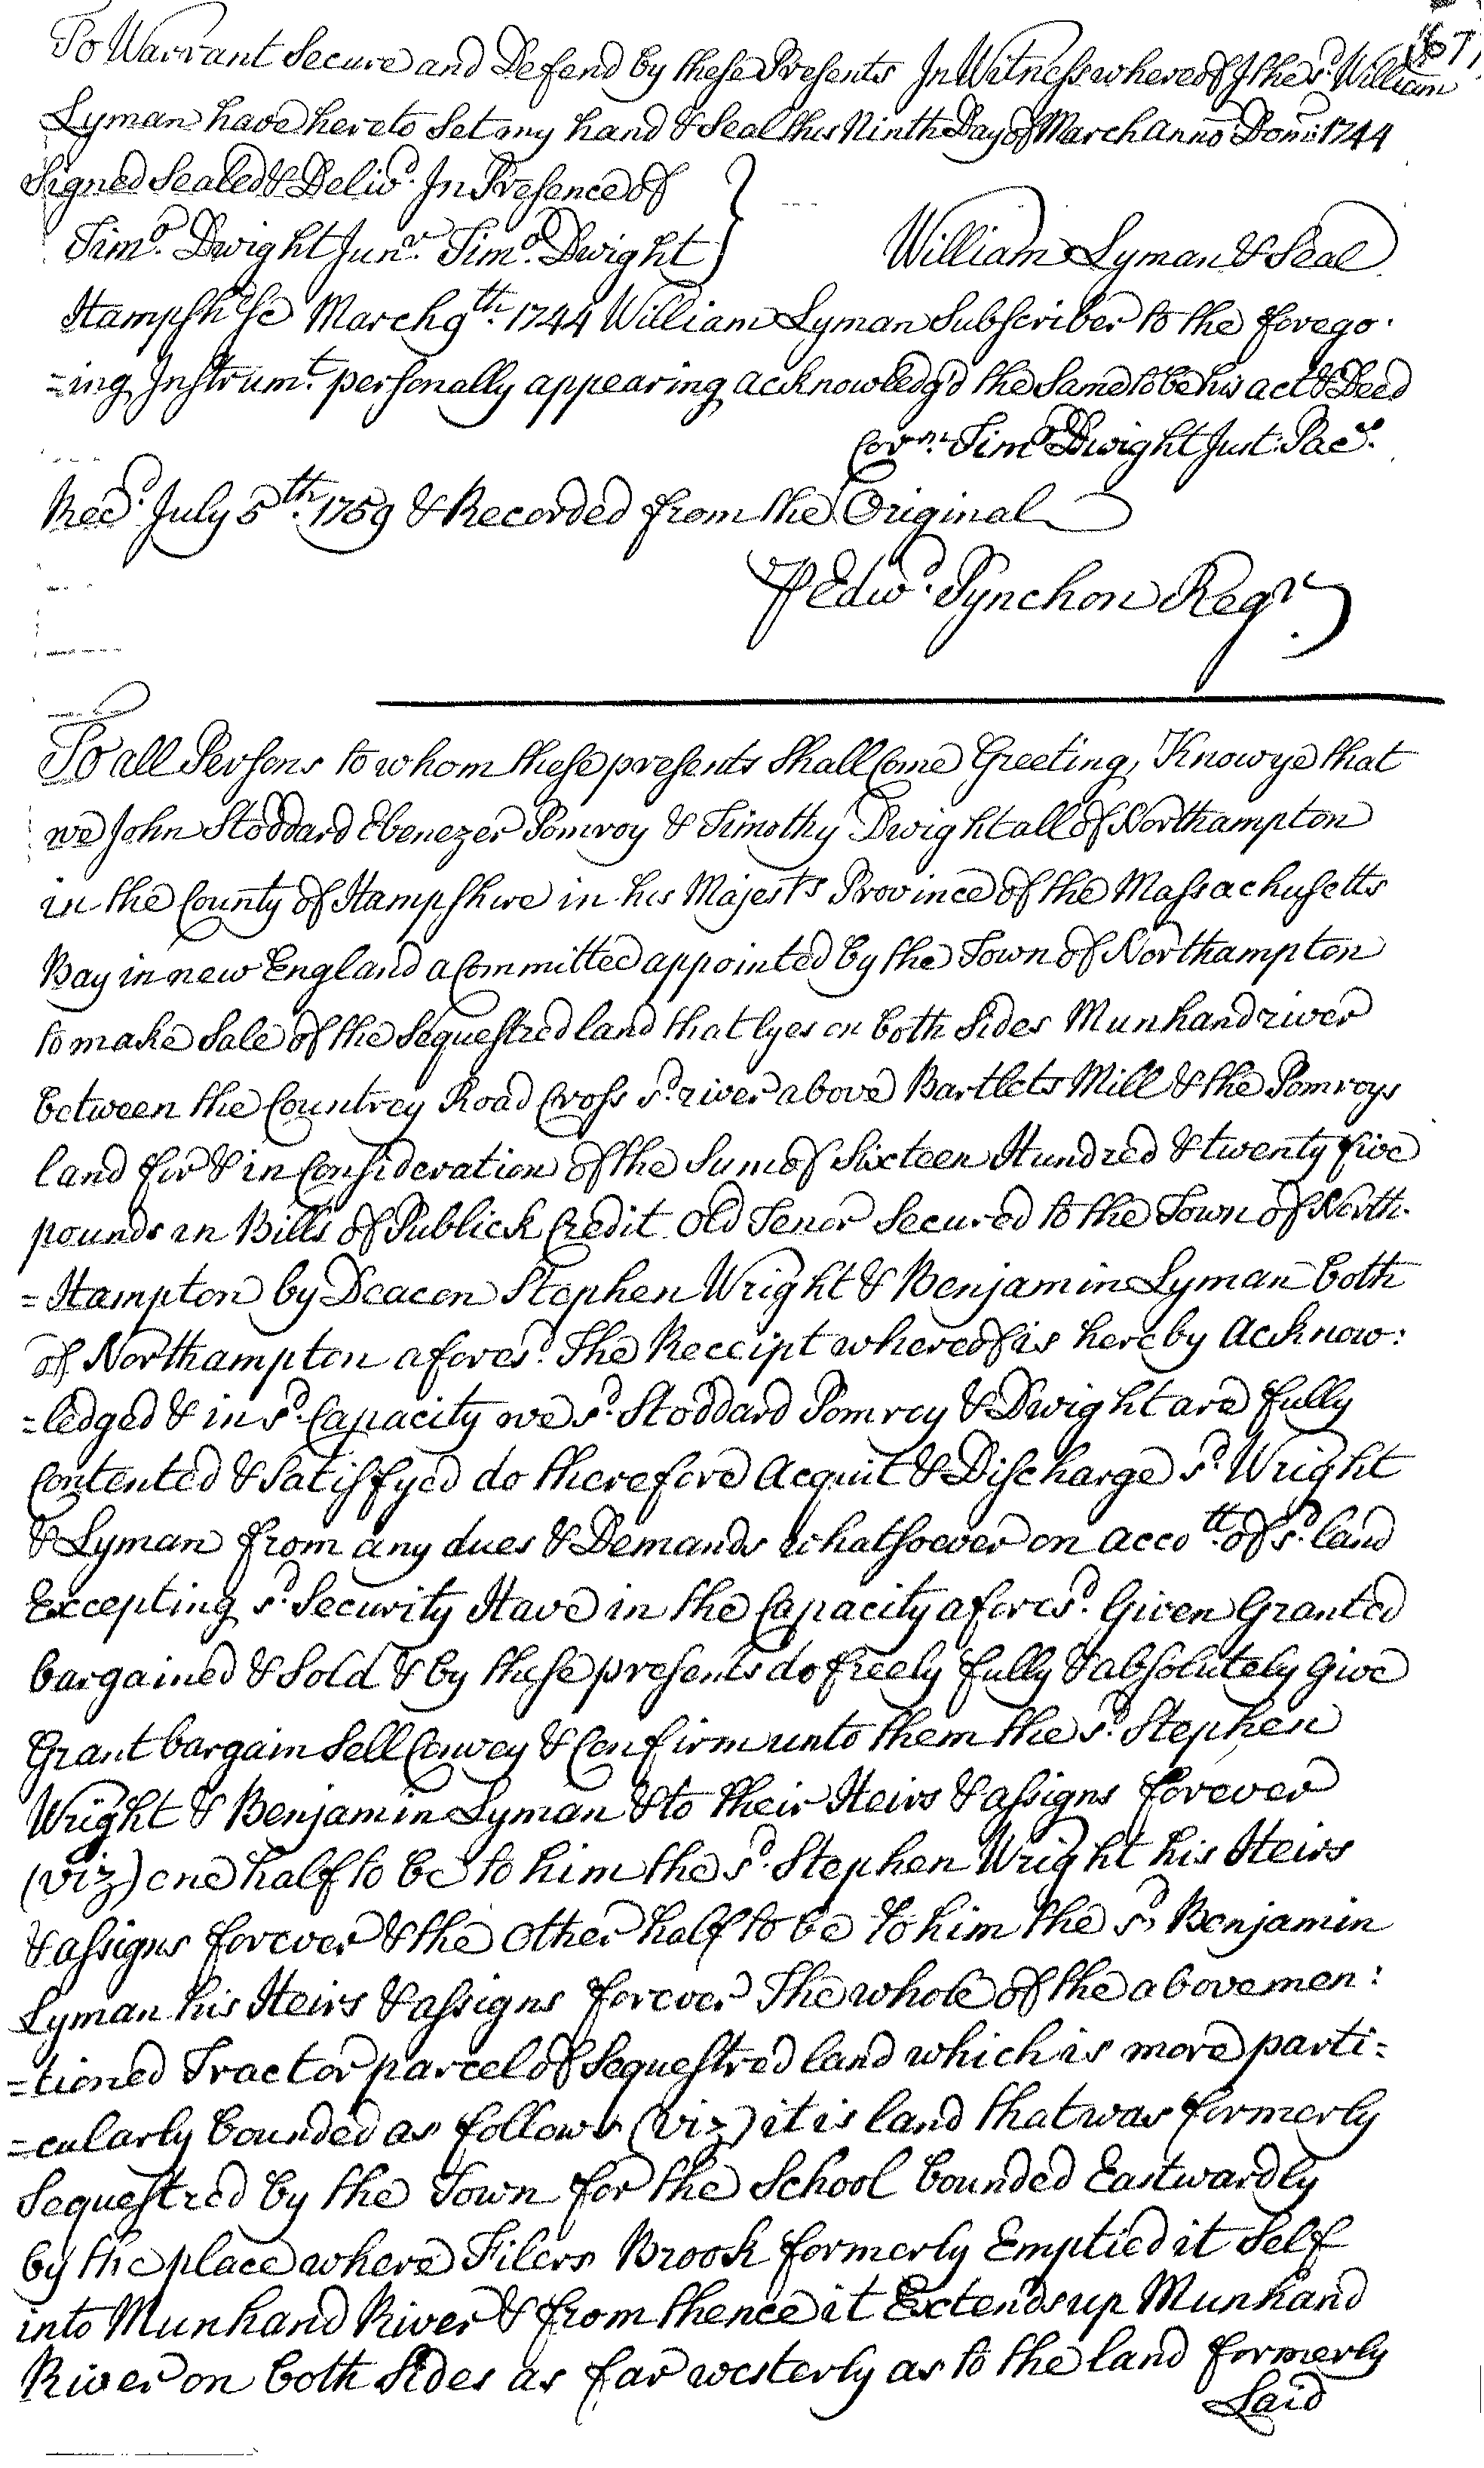 To Warrant Secure and Defend by these Presents In Witness whereof I the sd. William
Lyman have hereto Set my hand & Seal this Ninth Day of March Anno Dom: 1744
Signed Sealed & Delivd. In Presence of
Timo. Dwight Junr. Timo. Dwight
William Lyman & Seal
Hampshr. Sc March 9th. 1744 William Lyman Subscriber to the forego-
=ing Instrumt. personally appearing acknowledg'd the Same to be his act & Deed
Corm. Timo Dwight Just: Pacs.
Recd. July 5th. 1759 & Recorded from the Original
P Edwd. Pynchon Regr.
To all Persons to whom these presents Shall Come Greeting, Know ye that
we John Stoddard Ebenezer Pomroy & Timothy Dwight all of Northampton
in the County of Hampshire in his Majests Province of the Massachusetts
Bay in new England a Committee appointed by the Town of Northampton
to make Sale of the Sequestred land that lyes on both Sides Munhand river
between the Countrey Road Cross sd. river above Bartlets Mill & the Pomroys
land for & in Consideration of the Sum of Sixteen Hundred & twenty five
pounds in Bills of Publick Credit Old Tenor Secured to the Town of North-
=Hampton by Deacon Stephen Wright & Benjamin Lyman both
of Northampton aforesd. The Receipt whereof is hereby Acknow:
=ledged & in sd. Capacity we sd. Stoddard Pomroy & Dwight are fully
Contented & Satisfyed do therefore Acquit & Discharge sd. Wright
& Lyman from any dues & Demands whatsoever on accott. of sd. land
Excepting sd. Security Have in the Capacity aforesd. Given Granted
bargained & Sold & by these presents do freely fully & absolutely Give
Grant bargain Sell Convey & Confirm unto them the sd. Stephen
Wright & Benjamin Lyman & to their Heirs & assigns forever
(viz) one half to be to him the sd. Stephen Wright his Heirs
& assigns forever & the Other half to be to him the sd. Benjamin
Lyman his Heirs & assigns forever The whole of the abovemen:
=tioned Tract or parcel of Sequestred land which is more parti=
=cularly bounded as follows (viz) it is land that was formerly
Sequestred by the Town for the School bounded Eastwardly
by the place where Filers Brook formerly Emptied it Self
into Munhand River & from thence it Extends up Munhand
River on both Sides as far westerly as to the land formerly
Laid